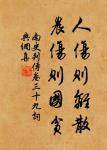 人傷則離散
農傷則國貧
南史列傳卷三十九詞
典網喜